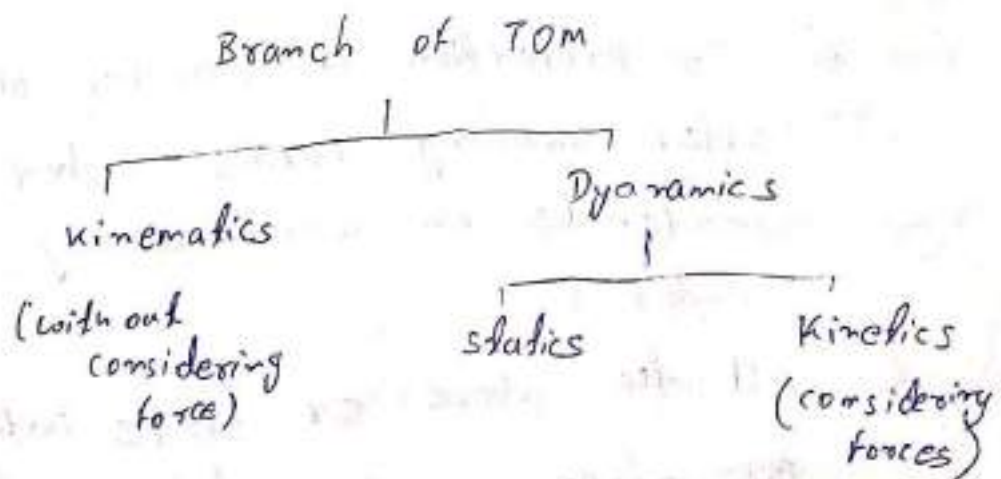 Branch of TOM
Kinematics
Dyanamics
(with out
considering
force)
statics
Kinetics
(considering
forces)